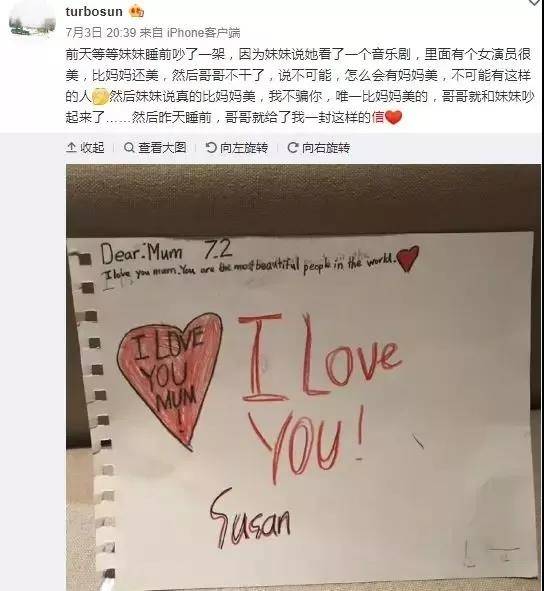 turbosun
7月3日 20:39 来自 iPhone客户端
前天等等妹妹睡前吵了一架，因为妹妹说她看了一个音乐剧，里面有个女演员很
美，比妈妈还美，然后哥哥不干了，说不可能，怎么会有妈妈美，不可能有这样
的人然后妹妹说真的比妈妈美，我不骗你，唯一比妈妈美的，哥哥就和妹妹吵
起来了……然后昨天睡前，哥哥就给了我一封这样的信
收起 查看大图 向左旋转 向右旋转
Dear:Mum 7.2
I love you mum. You are the most beautiful people in the world.
I LOVE
YOU
MUM
!
I Love
YOU!
Susan